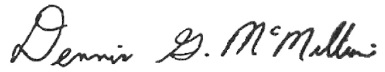 Dennis G. McMillin